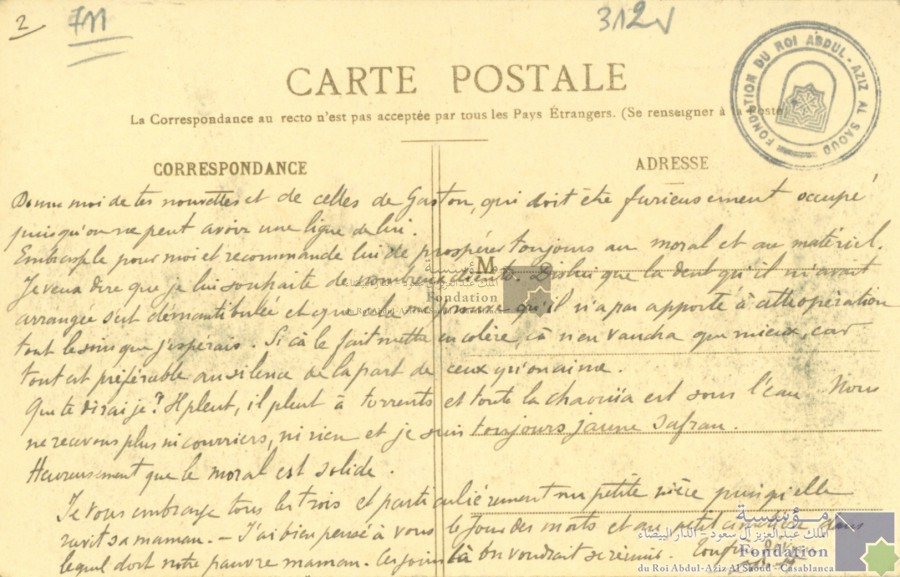 2 711 312
FONDATION DU ROI ABDUL-AZIZ AL SAOUD
CARTE POSTALE
La Correspondance au recto n'est pas acceptée par tous les Pays Étrangers. (Se renseigner à la Poste
CORRESPONDANCE
ADRESSE
Donne moi de tes nouvelles et de celles de Gaston, qui doit être furieusement occupé
puisqu'on ne peut avoir une ligne de lui.
Embrasse le pour moi et recommande lui de prospérer toujours au moral et au matériel.
Je veux dire que je lui souhaite de nombreux clients. Dis lui que la dent qu'il m'avait
arrangée s'est démantibulée et que cela me prouve qu'il n'a pas apporté à cette opération
tout le soin que j'espérais. Si çà le fait mettre en colère, çà n'en vaudra que mieux, car
tout est préférable au silence de la part de ceux qu'on aime.
Que te dirai je? Il pleut, il pleut à torrents et toute la chaouïa est sous l'eau. Nous
ne recevons plus ni courriers, ni rien et je suis toujours jaune safran.
Heureusement que le moral est solide.
Je vous embrasse tous les trois et particulièrement ma petite nièce puisqu'elle
ravit sa maman. — J'ai bien pensé à vous le jour des morts et au petit cimetière dans
lequel dort notre pauvre maman. Ces jours là on voudrait se réunir.
مؤسسة
الملك عبد العزيز آل سعود - الدار البيضاء
Fondation
du Roi Abdul-Aziz Al Saoud - Casablanca